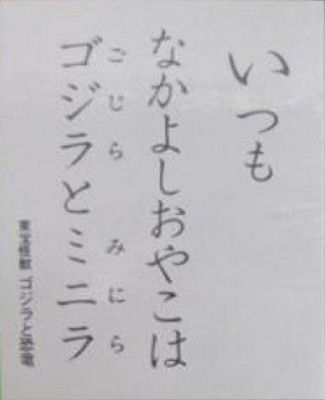 いつも
なかよしおやこは
ごじら みにら
ゴジラとミニラ
ゴジラと恐竜